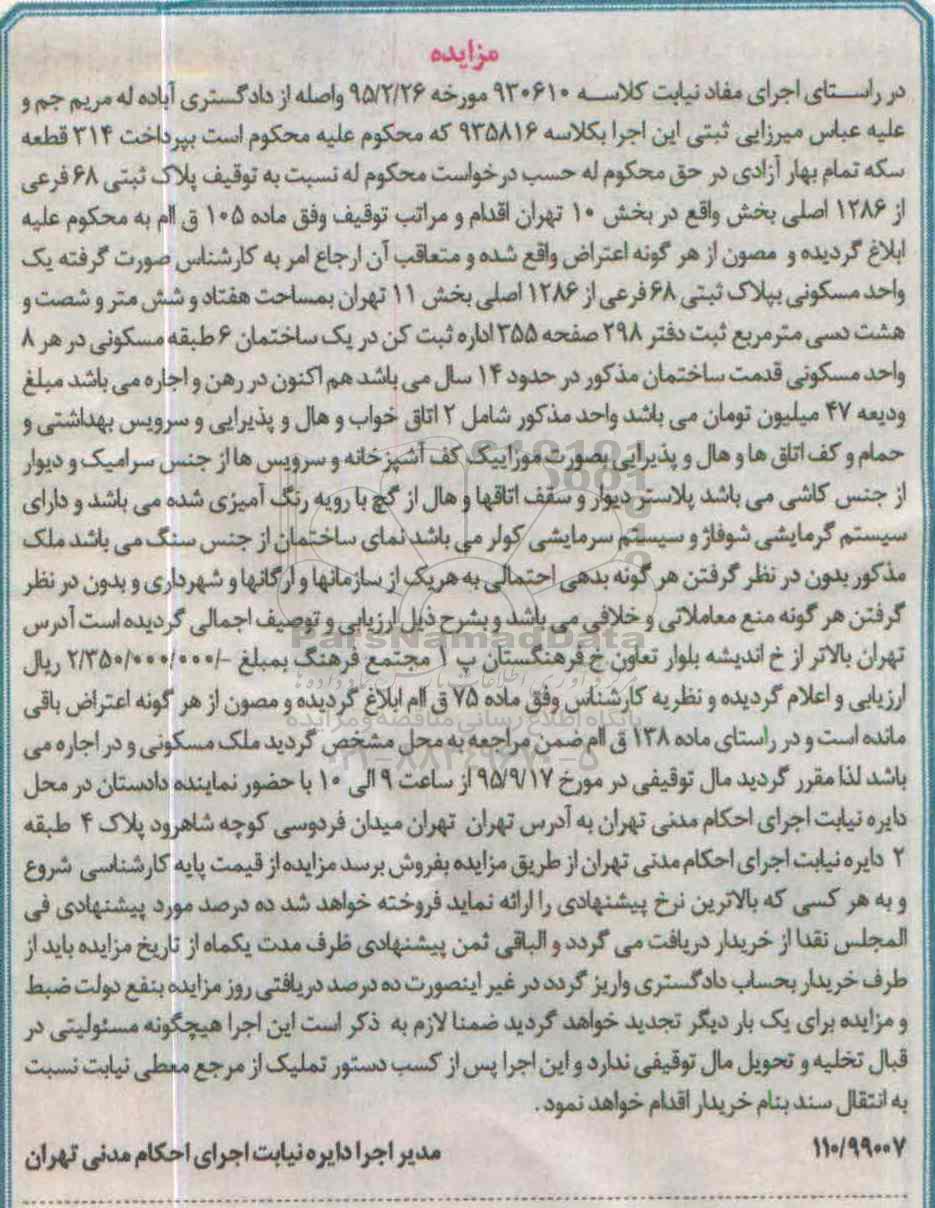 مزایده
در راستای اجرای مفاد نیابت کلاسه ۹۳۰۶۱۰ مورخه ۹۵/۲/۲۶ واصله از دادگستری آباده له مریم جم و
علیه عباس میرزایی ثبتی این اجرا بکلاسه ۹۳۵۸۱۶ که محکوم علیه محکوم است بپرداخت ۳۱۴ قطعه
سکه تمام بهار آزادی در حق محکوم له حسب درخواست محکوم له نسبت به توقیف پلاک ثبتی ۶۸ فرعی
از ۱۲۸۶ اصلی بخش واقع در بخش ۱۰ تهران اقدام و مراتب توقیف وفق ماده ۱۰۵ ق اام به محکوم علیه
ابلاغ گردیده و مصون از هر گونه اعتراض واقع شده و متعاقب آن ارجاع امر به کارشناس صورت گرفته یک
واحد مسکونی بپلاک ثبتی ۶۸ فرعی از ۱۲۸۶ اصلی بخش ۱۱ تهران بمساحت هفتاد و شش متر و شصت و
هشت دسی مترمربع ثبت دفتر ۲۹۸ صفحه ۳۵۵ اداره ثبت کن در یک ساختمان ۶ طبقه مسکونی در هر ۸
واحد مسکونی قدمت ساختمان مذکور در حدود ۱۴ سال می باشد هم اکنون در رهن و اجاره می باشد مبلغ
ودیعه ۴۷ میلیون تومان می باشد واحد مذکور شامل ۲ اتاق خواب و هال و پذیرایی و سرویس بهداشتی و
حمام و کف اتاق ها و هال و پذیرایی بصورت موزاییک کف آشپزخانه و سرویس ها از جنس سرامیک و دیوار
از جنس کاشی می باشد پلاستر دیوار و سقف اتاقها و هال از گچ با رویه رنگ آمیزی شده می باشد و دارای
سیستم گرمایشی شوفاژ و سیستم سرمایشی کولر می باشد نمای ساختمان از جنس سنگ می باشد ملک
مذکور بدون در نظر گرفتن هر گونه بدهی احتمالی به هریک از سازمانها و ارگانها و شهرداری و بدون در نظر
گرفتن هر گونه منع معاملاتی و خلافی می باشد و بشرح ذیل ارزیابی و توصیف اجمالی گردیده است آدرس
ParsNamadData
تهران بالاتر از خ اندیشه بلوار تعاون خ فرهنگستان پ ۱ مجتمع فرهنگ بمبلغ -/۲/۳۵۰/۰۰۰/۰۰۰ ریال
ارزیابی و اعلام گردیده و نظریه کارشناس وفق ماده ۷۵ ق اام ابلاغ گردیده و مصون از هر گونه اعتراض باقی
پایگاه اطلاع رسانی مناقصه و مزایده
مانده است و در راستای ماده ۱۳۸ ق اام ضمن مراجعه به محل مشخص گردید ملک مسکونی و در اجاره می
باشد لذا مقرر گردید مال توقیفی در مورخ ۹۵/۹/۱۷ از ساعت ۹ الی ۱۰ با حضور نماینده دادستان در محل
دایره نیابت اجرای احکام مدنی تهران به آدرس تهران تهران میدان فردوسی کوچه شاهرود پلاک ۴ طبقه
۲ دایره نیابت اجرای احکام مدنی تهران از طریق مزایده بفروش برسد مزایده از قیمت پایه کارشناسی شروع
و به هر کسی که بالاترین نرخ پیشنهادی را ارائه نماید فروخته خواهد شد ده درصد مورد پیشنهادی فی
المجلس نقدا از خریدار دریافت می گردد و الباقی ثمن پیشنهادی ظرف مدت یکماه از تاریخ مزایده باید از
طرف خریدار بحساب دادگستری واریز گردد در غیر اینصورت ده درصد دریافتی روز مزایده بنفع دولت ضبط
و مزایده برای یک بار دیگر تجدید خواهد گردید ضمنا لازم به ذکر است این اجرا هیچگونه مسئولیتی در
قبال تخلیه و تحویل مال توقیفی ندارد و این اجرا پس از کسب دستور تملیک از مرجع معطی نیابت نسبت
به انتقال سند بنام خریدار اقدام خواهد نمود.
۱۱۰/۹۹۰۰۷ مدیر اجرا دایره نیابت اجرای احکام مدنی تهران